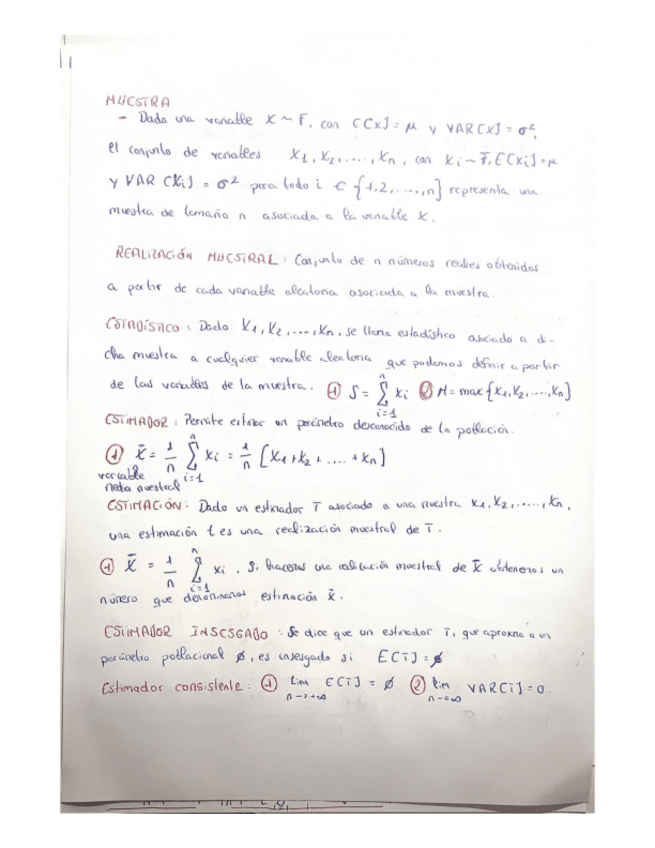 MUESTRA
- Dada una variable X ~ F, con E[X] = μ y VAR[X] = σ²,
el conjunto de variables X₁, X₂, ...., Xₙ, con Xᵢ ~ F, E[Xᵢ] = μ
y VAR [Xᵢ] = σ² para todo i ∈ {1,2, ....,n} representa una
muestra de tamaño n asociada a la variable X.
REALIZACIÓN MUESTRAL: Conjunto de n números reales obtenidos
a partir de cada variable aleatoria asociada a la muestra.
ESTADÍSTICO: Dado X₁, X₂, ...., Xₙ, se llama estadístico asociado a di-
cha muestra a cualquier variable aleatoria que podamos definir a partir
de las variables de la muestra. ① S = Σᵢ₌₁ⁿ Xᵢ ② M = max {X₁, X₂, ...., Xₙ}
ESTIMADOR: Permite estimar un parámetro desconocido de la población.
① X̄ = 1/n Σᵢ₌₁ⁿ Xᵢ = 1/n [X₁+X₂+ .... +Xₙ]
variable
media muestral
ESTIMACIÓN: Dado un estimador T asociado a una muestra X₁, X₂, ...., Xₙ,
una estimación t es una realización muestral de T.
① X̄ = 1/n Σᵢ₌₁ⁿ Xᵢ. Si hacemos una realización muestral de X̄ obtenemos un
número que denominamos estimación x̄.
ESTIMADOR INSESGADO: Se dice que un estimador T, que aproxima a un
parámetro poblacional ϕ, es insesgado si E[T] = ϕ
Estimador consistente: ① lim n→+∞ E[T] = ϕ ② lim n→∞ VAR[T] = 0